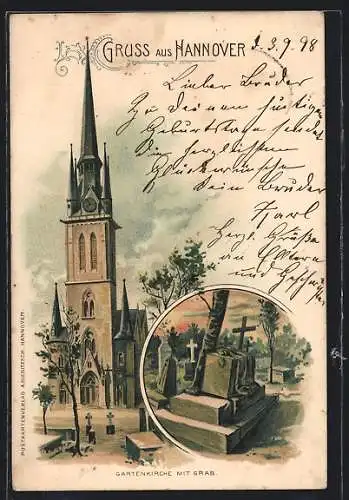 GRUSS AUS HANNOVER
d. 3. 9. 98
Lieber Bruder
Zu deinem heutigen
Geburtstage sendet
die herzlichsten
Glückwünsche
dein Bruder
Karl
Herzl. Grüße
an Eltern
und Geschwister
POSTKARTENVERLAG HANNOVER.
GARTENKIRCHE MIT GRAB.